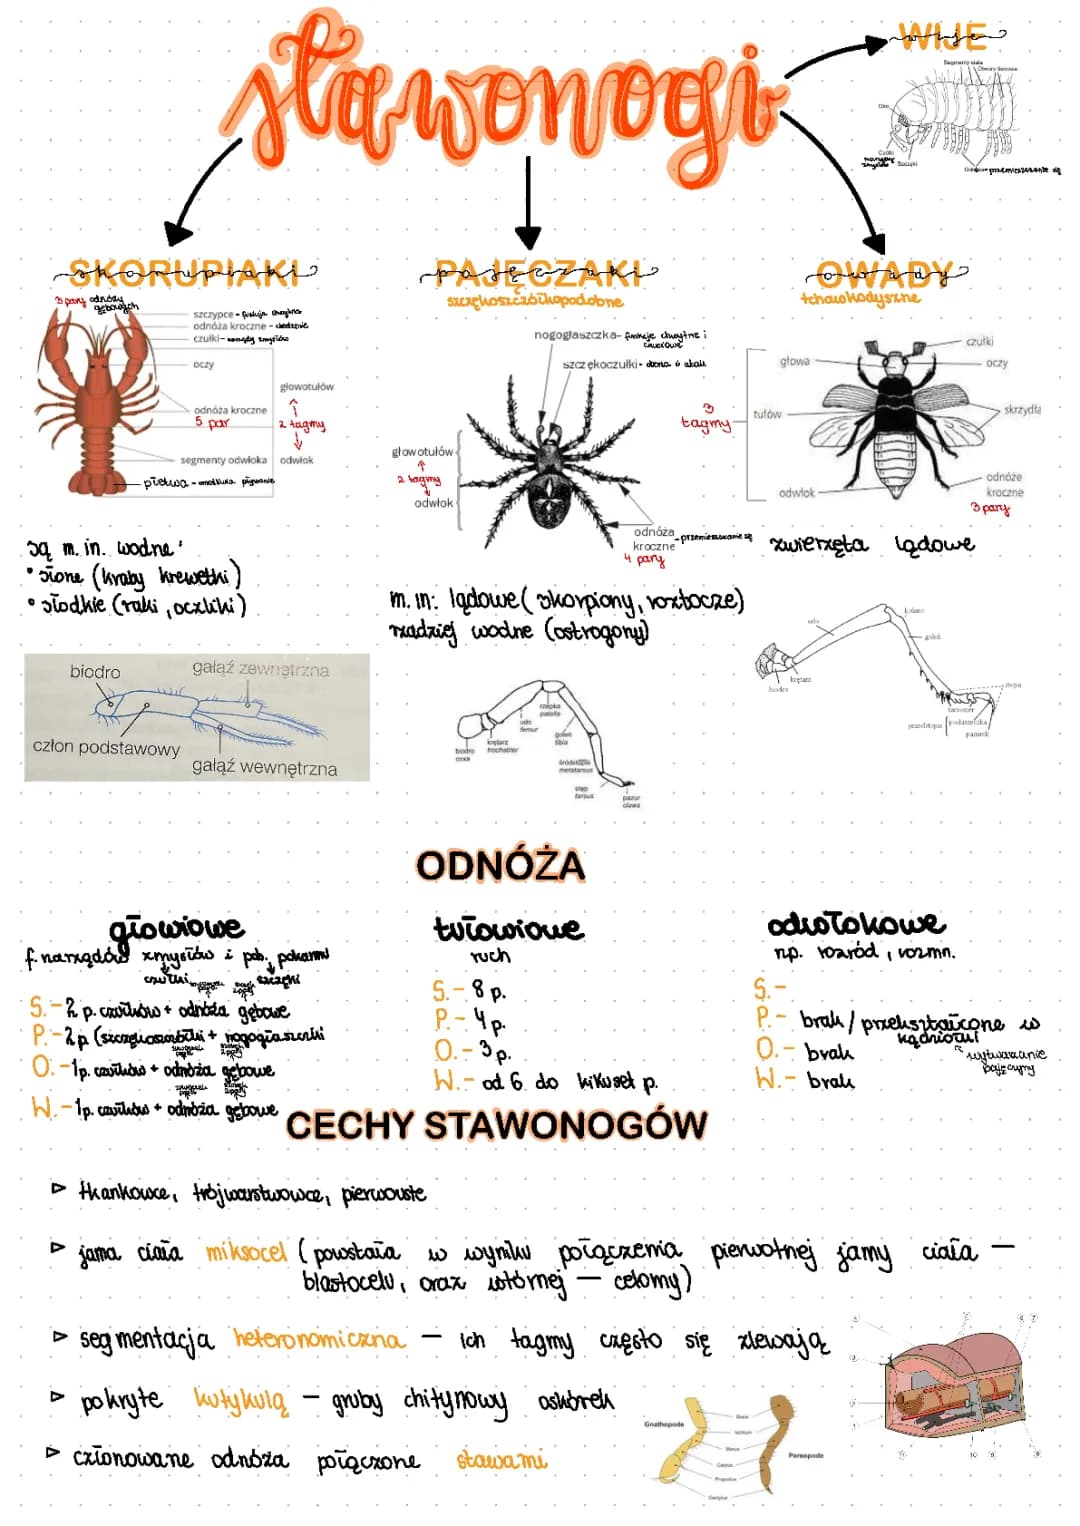 stawonogi
WIJE
wije
Segmenty ciała
Oko
Czułki
narządy zmysłów
przemieszczanie się
SKORUPIAKI
skorupiaki
PAJĘCZAKI
pajęczaki
szczękoczółkopodobne
OWADY
owady
tchawkodyszne
3 pary odnóży gębowych
szczypce - funkcja chwytna
odnóża kroczne - chodzenie
czułki - narządy zmysłów
oczy
głowotułów
odnóża kroczne
5 par
2 tagmy
segmenty odwłoka
odwłok
płetwa - pływanie
nogogłaszczka - funkcje chwytne i czuciowe
szczękoczułki -
głowotułów
2 tagmy
odwłok
odnóża kroczne - przemieszczanie się
4 pary
głowa
czułki
oczy
3 tagmy
tułów
skrzydła
odwłok
odnóże kroczne
3 pary
są m. in. wodne:
• słone (kraby krewetki)
• słodkie (raki, oczliki)
m.in: lądowe (skorpiony, roztocze)
rzadziej wodne (ostrogony)
zwierzęta lądowe
biodro
gałąź zewnętrzna
człon podstawowy
gałąź wewnętrzna
biodro
coxa
krętarz
trochanter
udo
femur
rzepka
patella
goleń
tibia
śródstopie
metatarsus
stęp
tarsus
pazur
claws
udo
kolano
goleń
krętarz
biodro
stopa
przedstopie
pazurek
ODNÓŻA
głowiowe
f. narządów zmysłów i pob. pokarmu
czułki
szczęki
S. - 2 p. czułków + odnóża gębowe
P. - 2p (szczękoczułki + nogogłaszczki
O. - 1p. czułków + odnóża gębowe
W. - 1p. czułków + odnóża gębowe
tułowiowe
ruch
S. - 8 p.
P. - 4 p.
O. - 3 p.
W. - od 6 do kilkuset p.
odwłokowe
np. rozród, rozmn.
S. -
P. - brak/przekształcone w kądziołki
wytwarzanie pajęczyny
O. - brak
W. - brak
CECHY STAWONOGÓW
▷ tkankowce, trójwarstwowce, pierwouste
▷ jama ciała miksocel (powstała w wyniku połączenia pierwotnej jamy ciała —
blastocelu, oraz wtórnej — celomy)
▷ segmentacja heteronomiczna — ich tagmy często się zlewają
▷ pokryte kutykulą — gruby chitynowy oskórek
▷ członowane odnóża połączone stawami
Gnathopode
Basis
Ischium
Merus
Carpus
Propodus
Dactylus
Pereopode